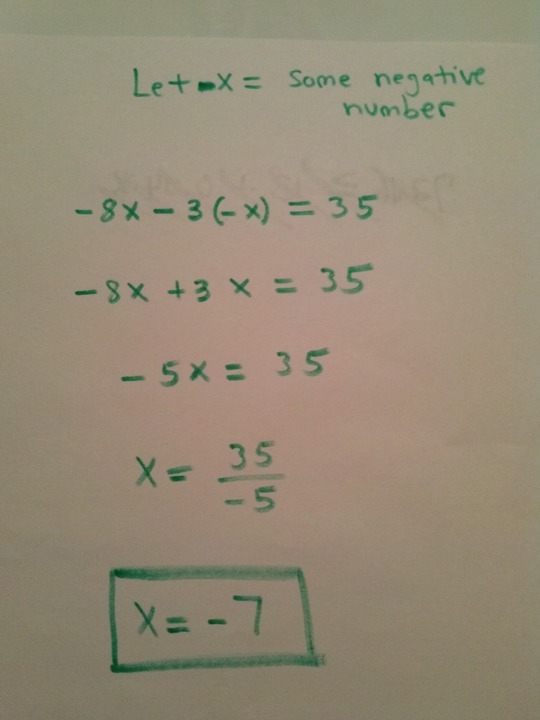 Let -x = some negative
number
-8x - 3(-x) = 35
-8x + 3x = 35
-5x = 35
x = 35/-5
x = -7